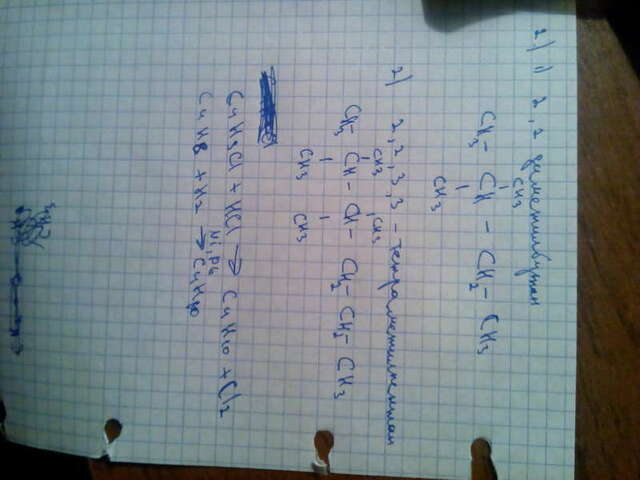 2) 1) 2,2 диметилбутан
CH₃
CH₃ - CH - CH₂ - CH₃
CH₃
2) 2,2,3,3 - тетраметилпентан
CH₃ CH₃
CH₃ - CH - CH - CH₂ - CH₂ - CH₃
CH₃ CH₃
C₄H₉Cl + HCl → C₄H₁₀ + Cl₂
C₄H₈ + H₂ → C₄H₁₀